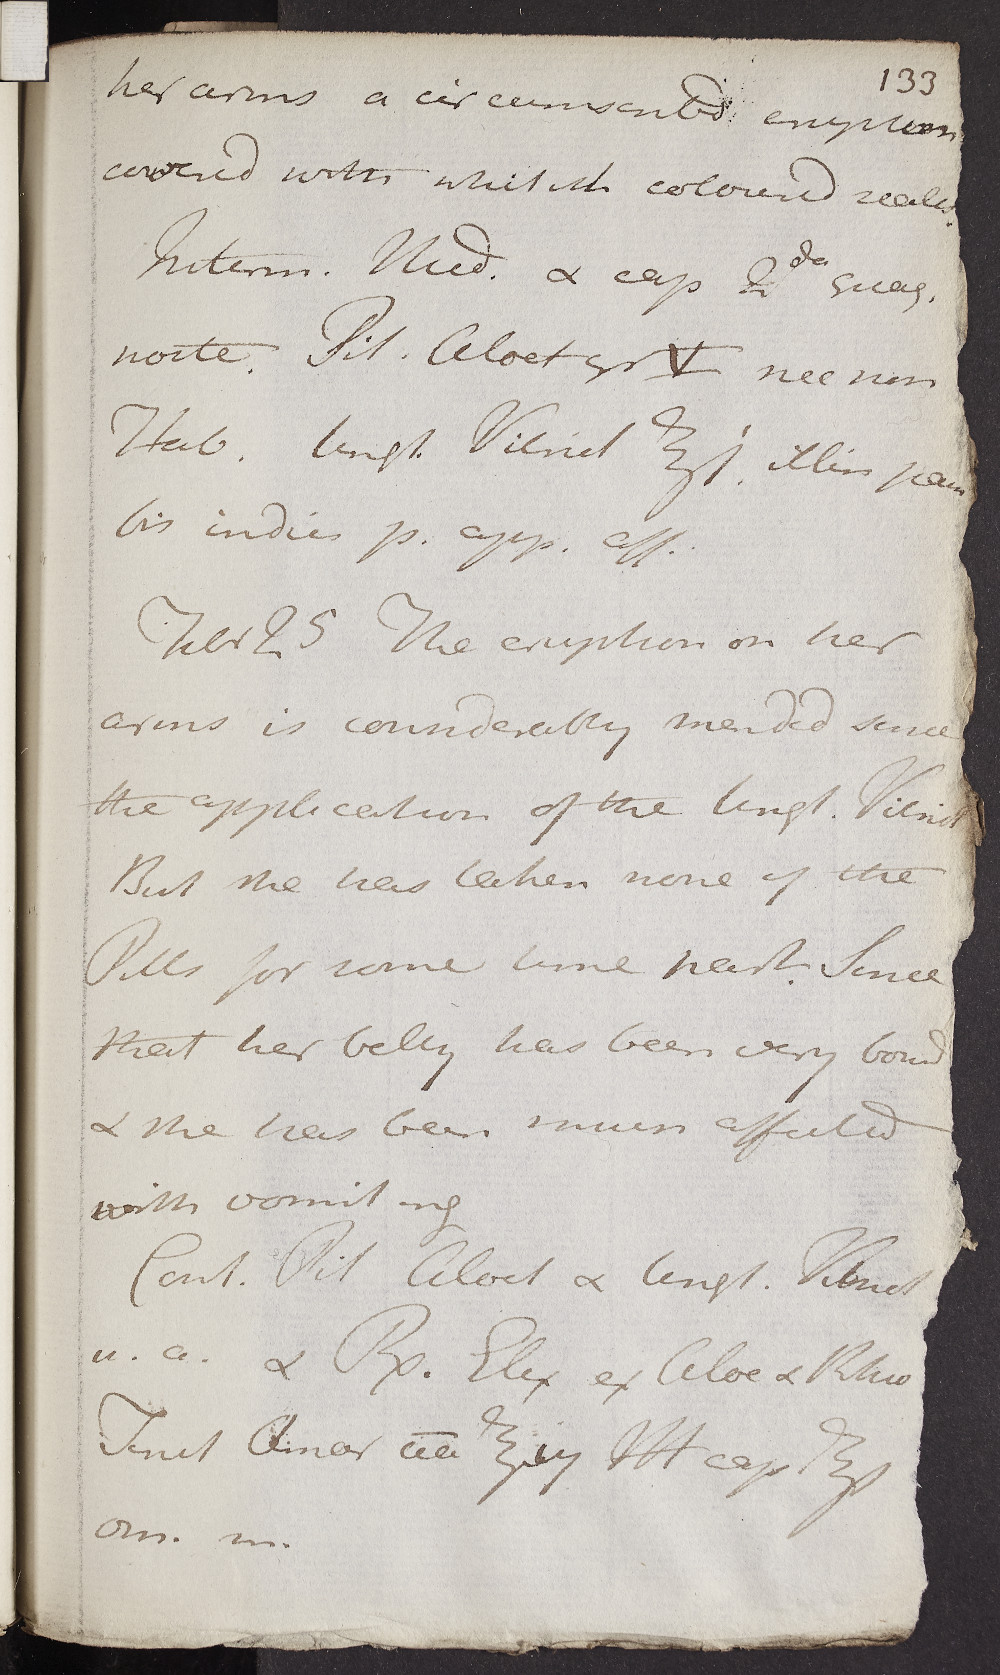 133
her arms a circumscrib'd eruption
covered with whitish coloured scales.
Interm. Med. & cap 2da quaq.
nocte. Pil. Aloet gr V nec non
Hab. Ungt. Virid ℥ß. illin pau
bis indies p. app. aff.
Febr 25 The eruption on her
arms is considerably mended since
the application of the Ungt. Virid
But she has taken none of the
Pills for some time past. Since
that her belly has been very bound
& she has been much affected
with vomiting
Cont. Pil Aloet & Ungt. Virid
u. a. & Rx. Elix ex Aloe & Rheo
Tinct Amar aa ℥ij M cap ℥ß
om. m.